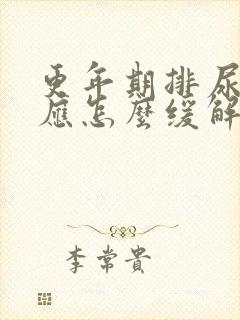 更年期排尿
應怎麼緩解
李常貴